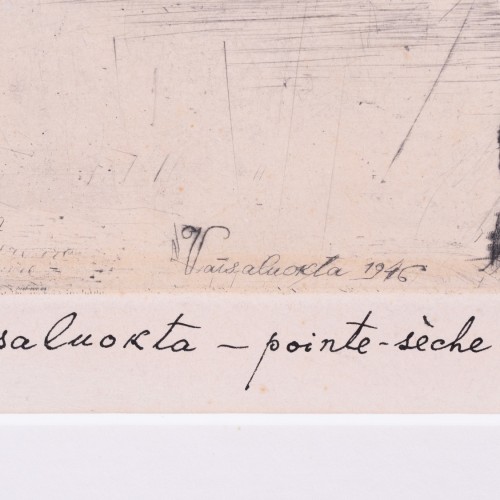 Vaisaluokta 1946
saluokta – pointe-sèche